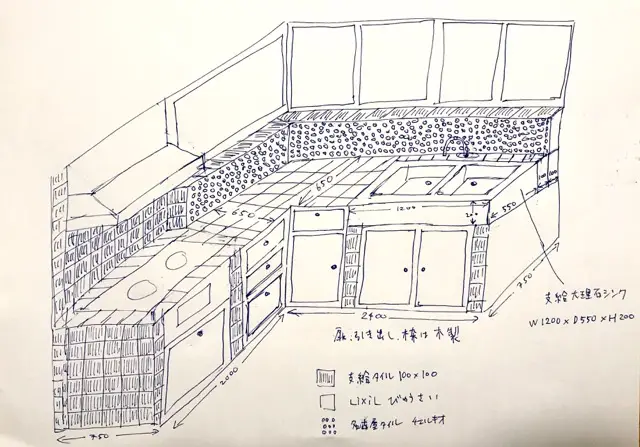 650
650
1200
200
550
750
支給大理石シンク
W1200×D550×H200
2400
扉、引き出し、棧は木製
2000
750
支給タイル 100×100
LIXIL びかうさい
名古屋タイル チェルキオ